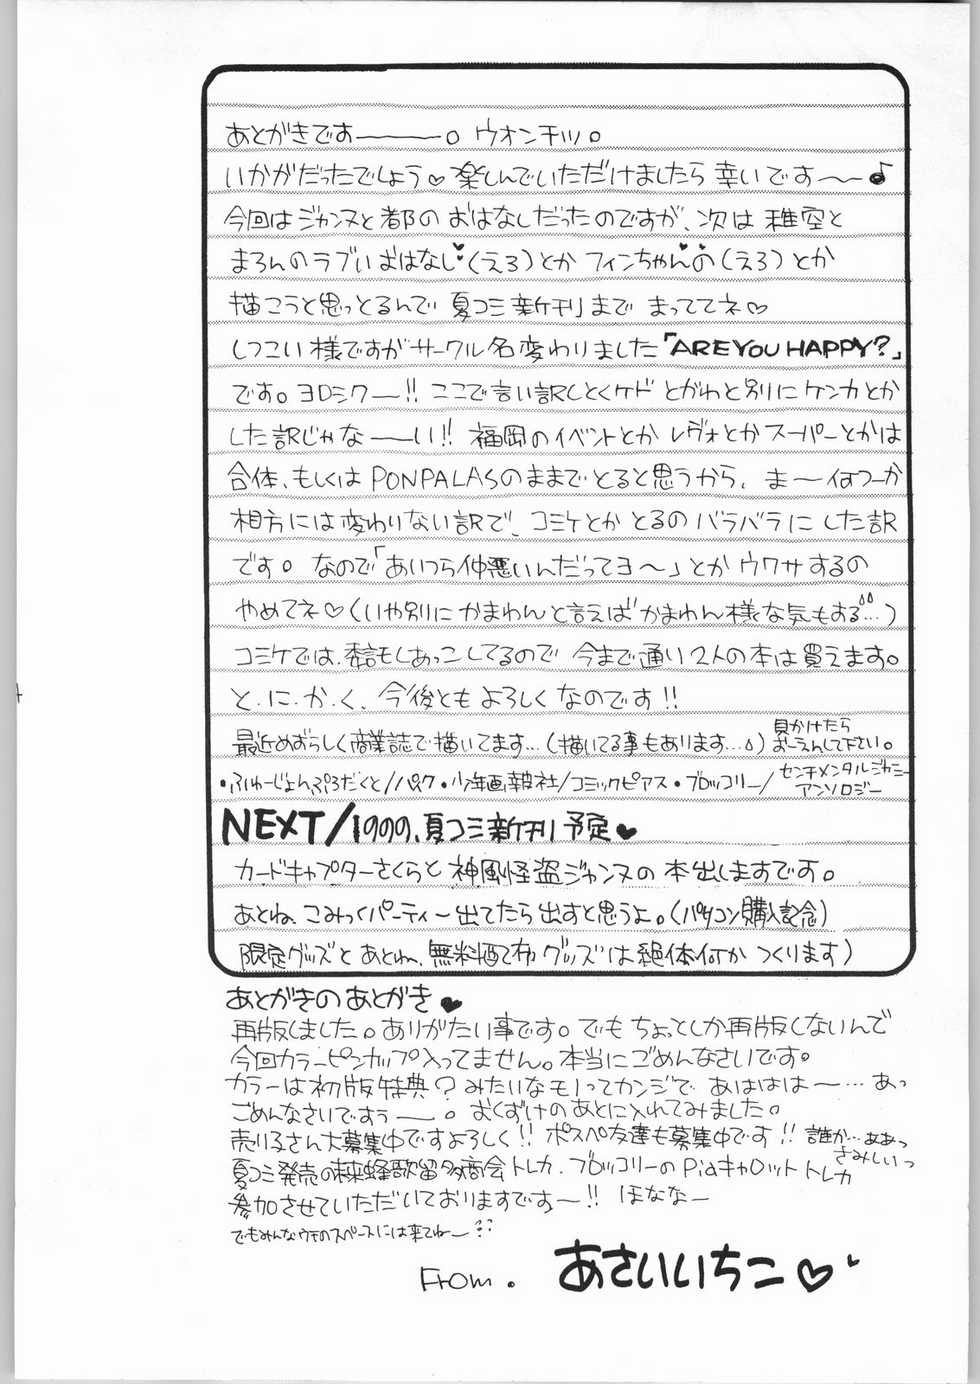 あとがきです———。ウオンチッ。
いかがだったでしょう♡楽しんでいただけましたら幸いです〜〜♪
今回はジャンヌと都のおはなしだったのですが、次は稚空と
まろんのラブいおはなし♥(えろ)とかフィンちゃんの(えろ)とか
描こうと思っとるんで夏コミ新刊までまっててネ♡
しつこい様ですがサークル名変わりました「ARE YOU HAPPY?」
です。ヨロシクー!! ここで言い訳しとくケドとがわと別にケンカとか
した訳じゃな——い!! 福岡のイベントとかレヴォとかスーパーとかは
合体、もしくはPONPALASのままでとると思うから、ま〜何つーか
相方には変わりない訳で、コミケとかとるのバラバラにした訳
です。なので「あいつら仲悪いんだってヨ〜」とかウワサするの
やめてネ♡(いや別にかまわんと言えばかまわん様な気もする…)
コミケでは、委託もしあっこしてるので今まで通り2人の本は買えます。
と.に.か.く、今後ともよろしくなのです!!
最近めずらしく商業誌で描いてます…(描いてる事もあります…)見かけたらおーえんして下さい。
・ふゅーじょんぷろだくと/パック・少年画報社/コミックピアス・ブロッコリー/センチメンタルジャニーアンソロジー
NEXT/1999、夏コミ新刊予定♥
カードキャプターさくらと神風怪盗ジャンヌの本出しますです。
あとね、こみっくパーティー出てたら出すと思うよ。(パソコン購入記念)
限定グッズとあとね、無料配布グッズは絶体何かつくります)
あとがきのあとがき♥
再版しました。ありがたい事です。でもちょっとしか再版しないんで
今回カラーピンナップ入ってません。本当にごめんなさいです。
カラーは初版特典?みたいなモノってカンジであははは〜…あっ
ごめんなさいですぅ——。おくずけのあとに入れてみました。
売り子さん大募集中ですよろしく!! ポスペ友達も募集中です!! 誰か…ああっさみしいっ
夏コミ発売の未来蜂歌留多商会トレカ、ブロッコリーのPiaキャロットトレカ
参加させていただいておりますです〜!! ほなな〜
でもみんなウチのスペースには来てね〜
From. あさいいちこ♡